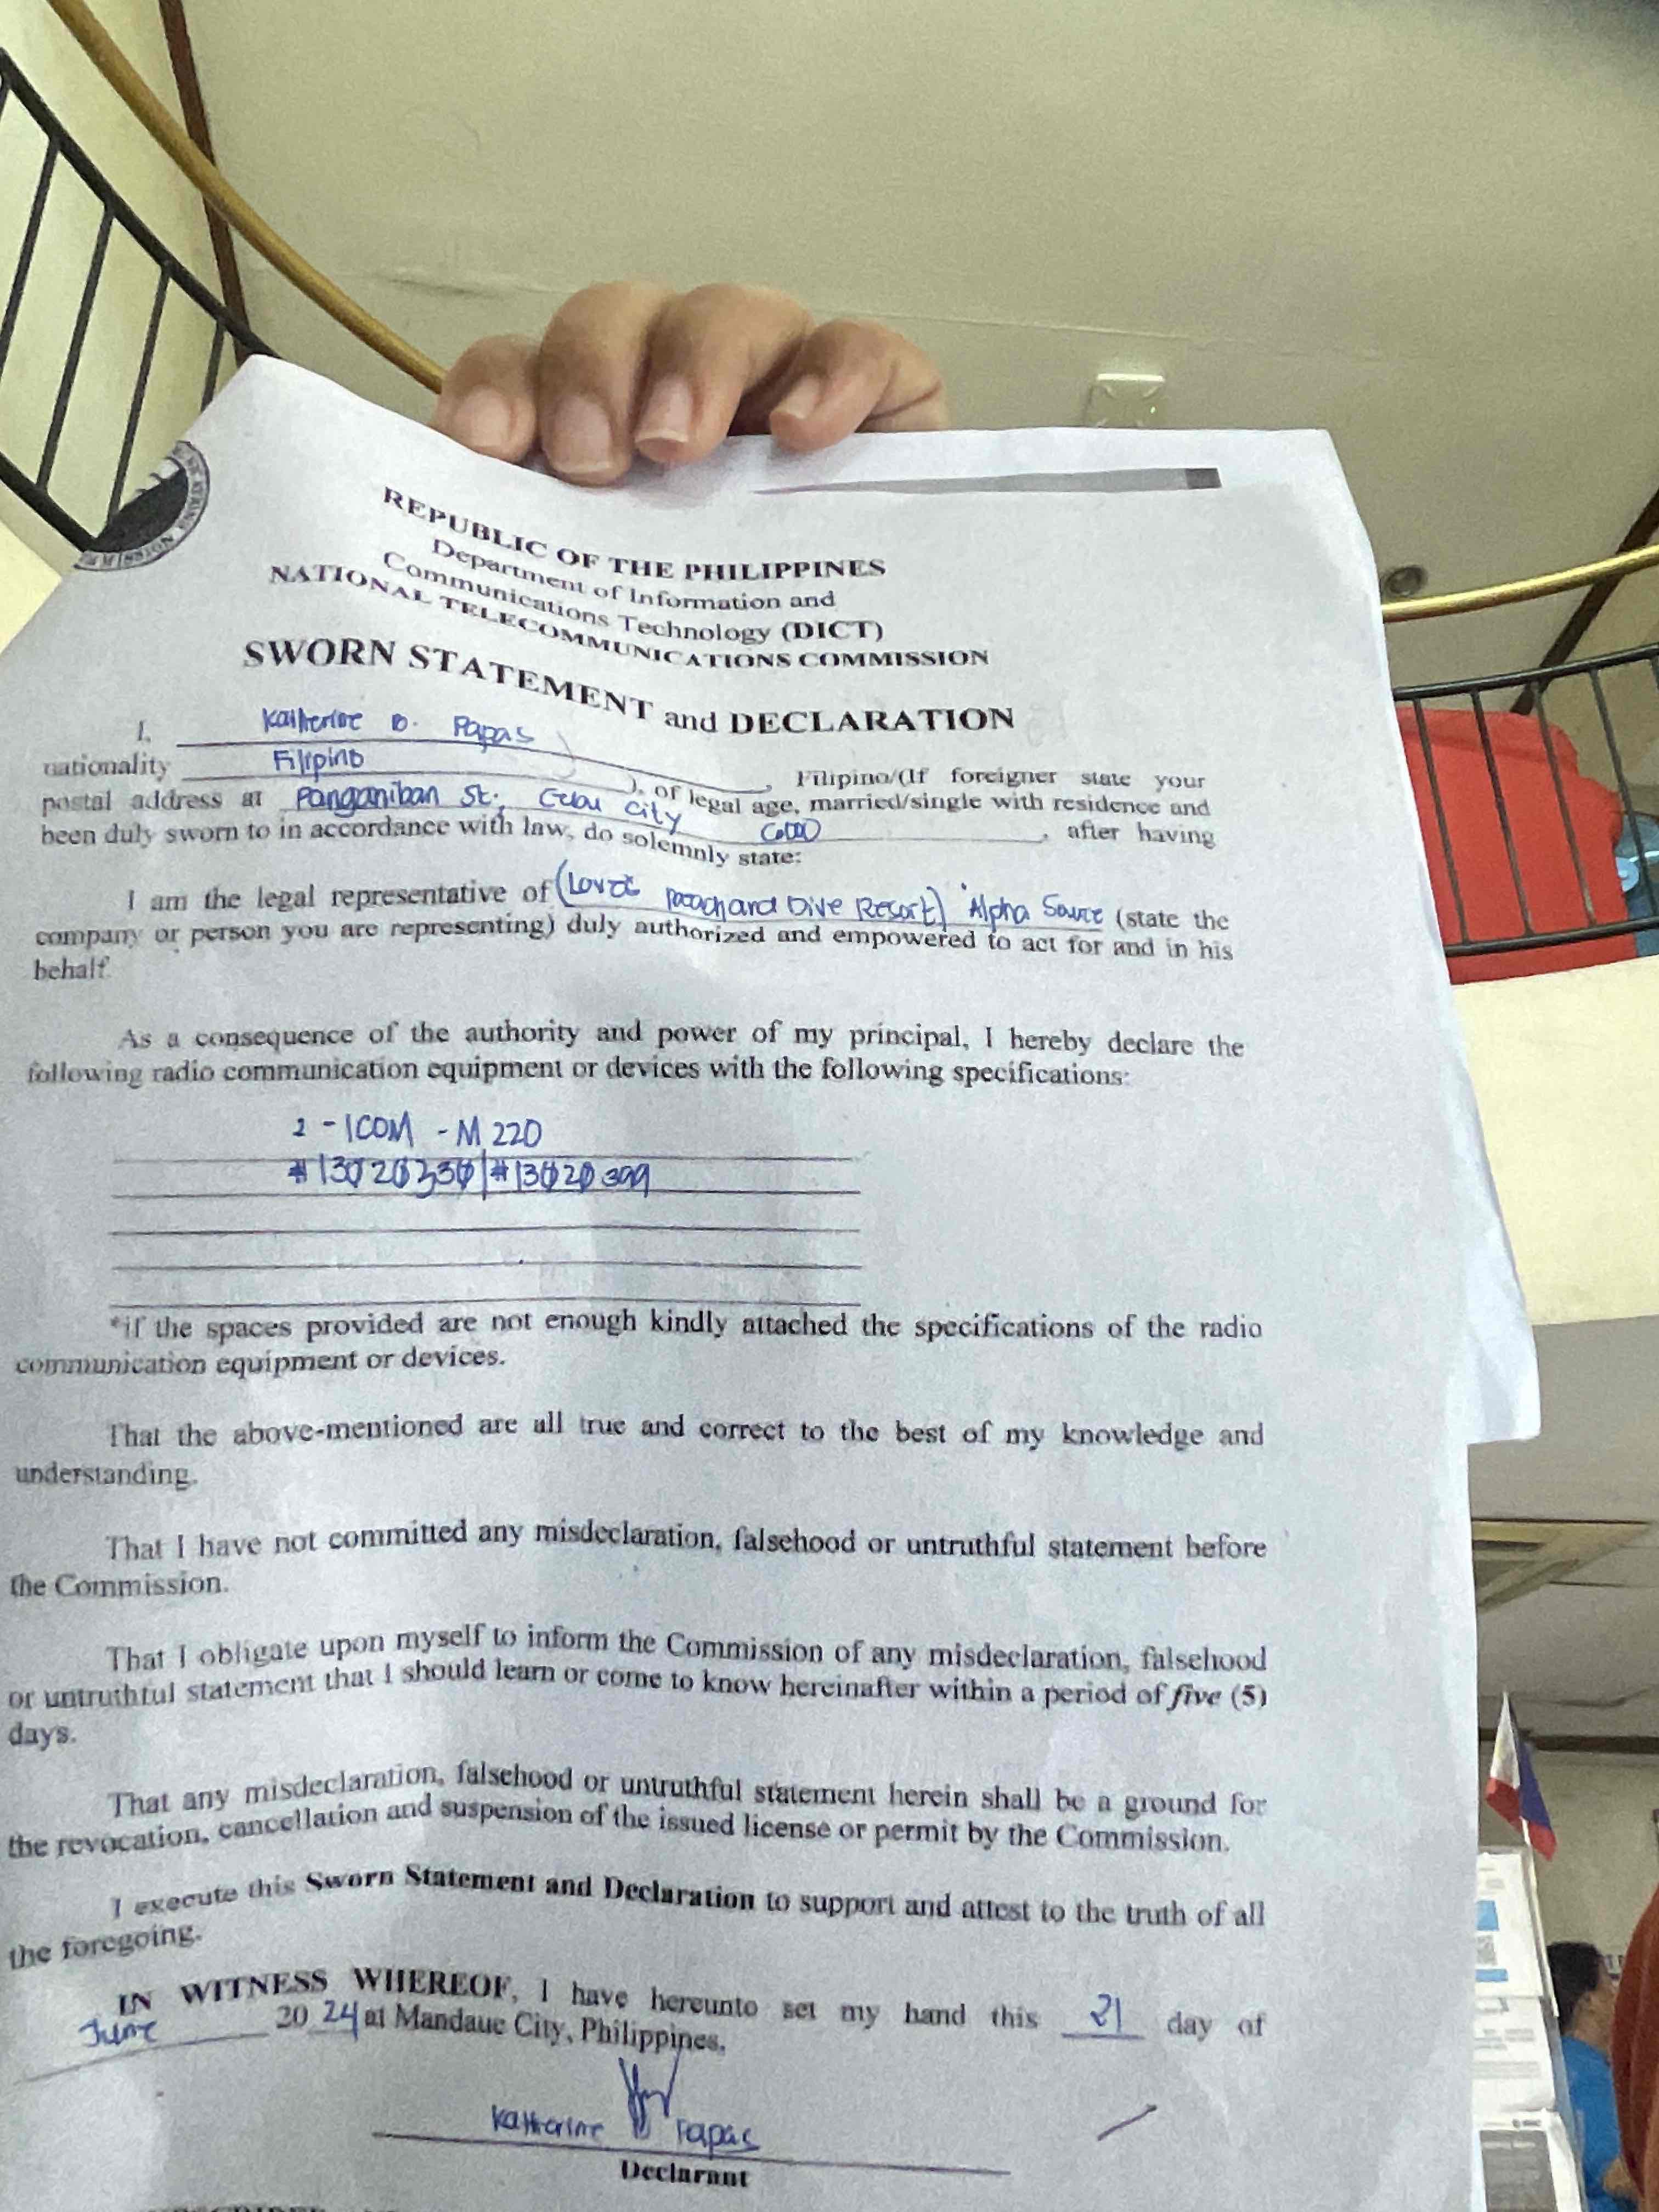 REPUBLIC OF THE PHILIPPINES
Department of Information and
Communications Technology (DICT)
NATIONAL TELECOMMUNICATIONS COMMISSION
SWORN STATEMENT and DECLARATION
I, Katherine D. Papas
nationality Filipino ), Filipino/(If foreigner state your
postal address at Panganiban St., Cebu City, of legal age, married/single with residence and
been duly sworn to in accordance with law, do solemnly state: 6000, after having
I am the legal representative of (Love's Beach and Dive Resort) Alpha Source (state the
company or person you are representing) duly authorized and empowered to act for and in his
behalf.
As a consequence of the authority and power of my principal, I hereby declare the
following radio communication equipment or devices with the following specifications:
2 - ICOM - M220
#13020330 | #13020399
*if the spaces provided are not enough kindly attached the specifications of the radio
communication equipment or devices.
That the above-mentioned are all true and correct to the best of my knowledge and
understanding.
That I have not committed any misdeclaration, falsehood or untruthful statement before
the Commission.
That I obligate upon myself to inform the Commission of any misdeclaration, falsehood
or untruthful statement that I should learn or come to know hereinafter within a period of five (5)
days.
That any misdeclaration, falsehood or untruthful statement herein shall be a ground for
the revocation, cancellation and suspension of the issued license or permit by the Commission.
I execute this Sworn Statement and Declaration to support and attest to the truth of all
the foregoing.
IN WITNESS WHEREOF, I have hereunto set my hand this 21 day of
June 2024 at Mandaue City, Philippines.
Katherine D Papas
Declarant